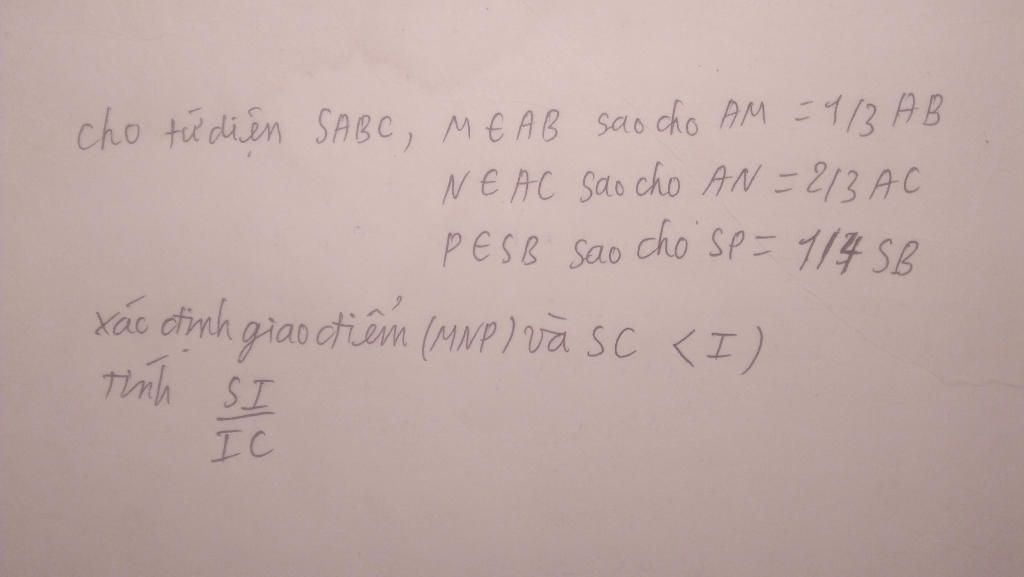 Cho tứ diện SABC, M ∈ AB sao cho AM = 1/3 AB
N ∈ AC sao cho AN = 2/3 AC
P ∈ SB sao cho SP = 1/4 SB
Xác định giao điểm (MNP) và SC < I)
Tính SI
IC